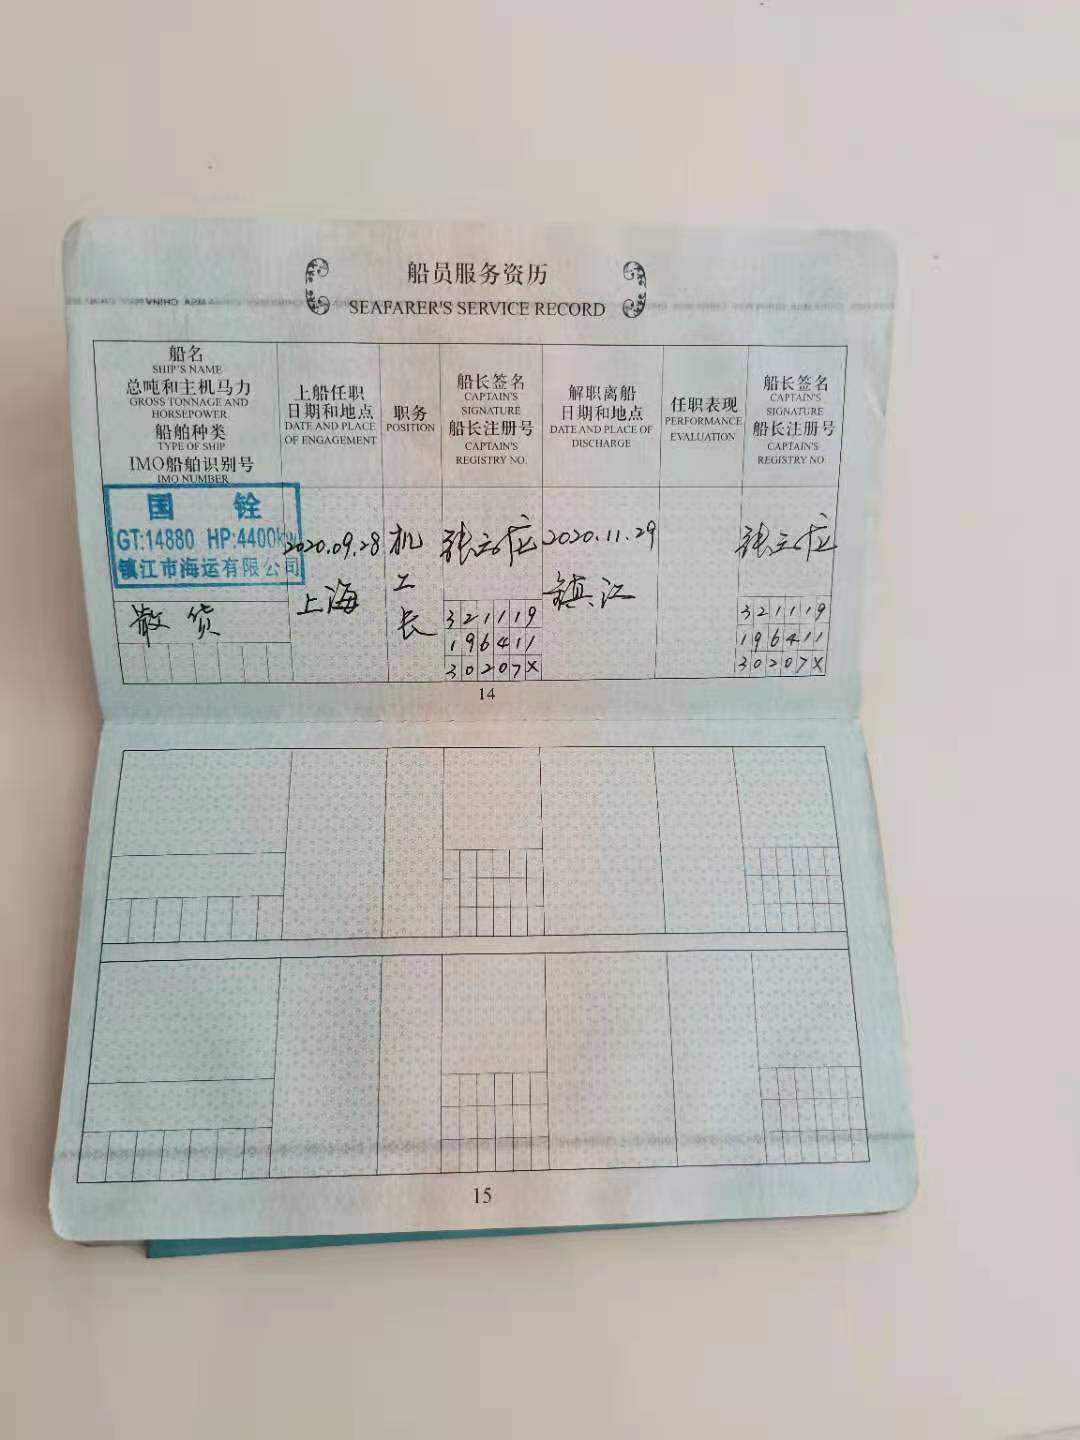 船员服务资历
SEAFARER'S SERVICE RECORD
船名
SHIP'S NAME
总吨和主机马力
GROSS TONNAGE AND
HORSEPOWER
船舶种类
TYPE OF SHIP
IMO船舶识别号
IMO NUMBER
上船任职
日期和地点
DATE AND PLACE
OF ENGAGEMENT
职务
POSITION
船长签名
CAPTAIN'S
SIGNATURE
船长注册号
CAPTAIN'S
REGISTRY NO.
解职离船
日期和地点
DATE AND PLACE OF
DISCHARGE
任职表现
PERFORMANCE
EVALUATION
船长签名
CAPTAIN'S
SIGNATURE
船长注册号
CAPTAIN'S
REGISTRY NO
国 铨
GT:14880 HP:4400kw
镇江市海运有限公司
散货
2020.09.28
上海
机
工
长
321119
196411
30207X
2020.11.29
镇江
321119
196411
30207X
14
15